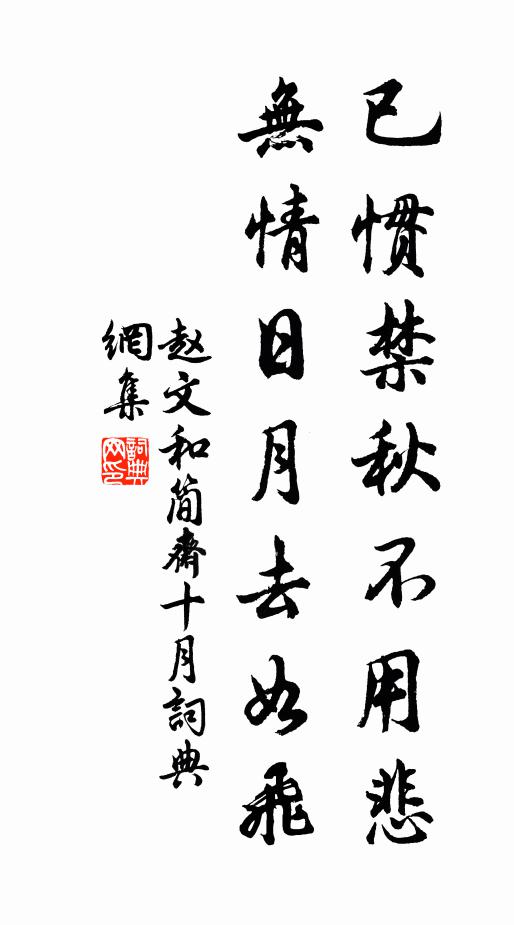 已惯禁秋不用悲
無情日月去如飛
赵文和简齋十月詞典
網集
詞典網印